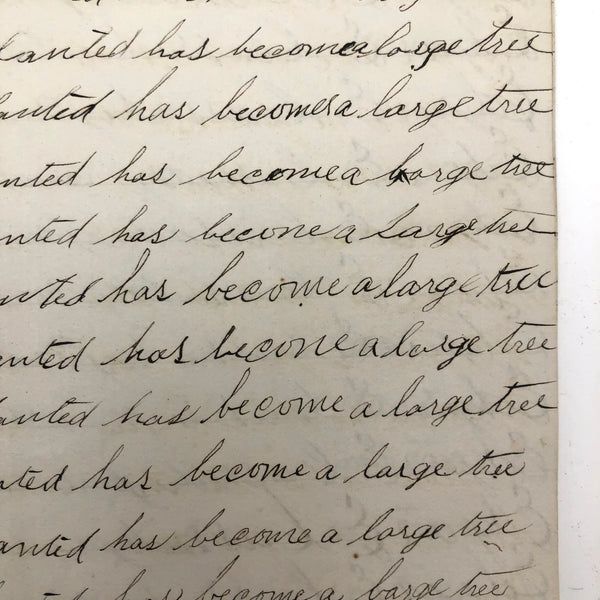 lanted has becomea large tree
lanted has becomesa large tree
nted has become a large tree
nted has becone a Large tree
nted has become a large tree
anted has becone a large tree
lanted has become a large tree
nted has become a large tree
anted has become a large tree
has become a large tree